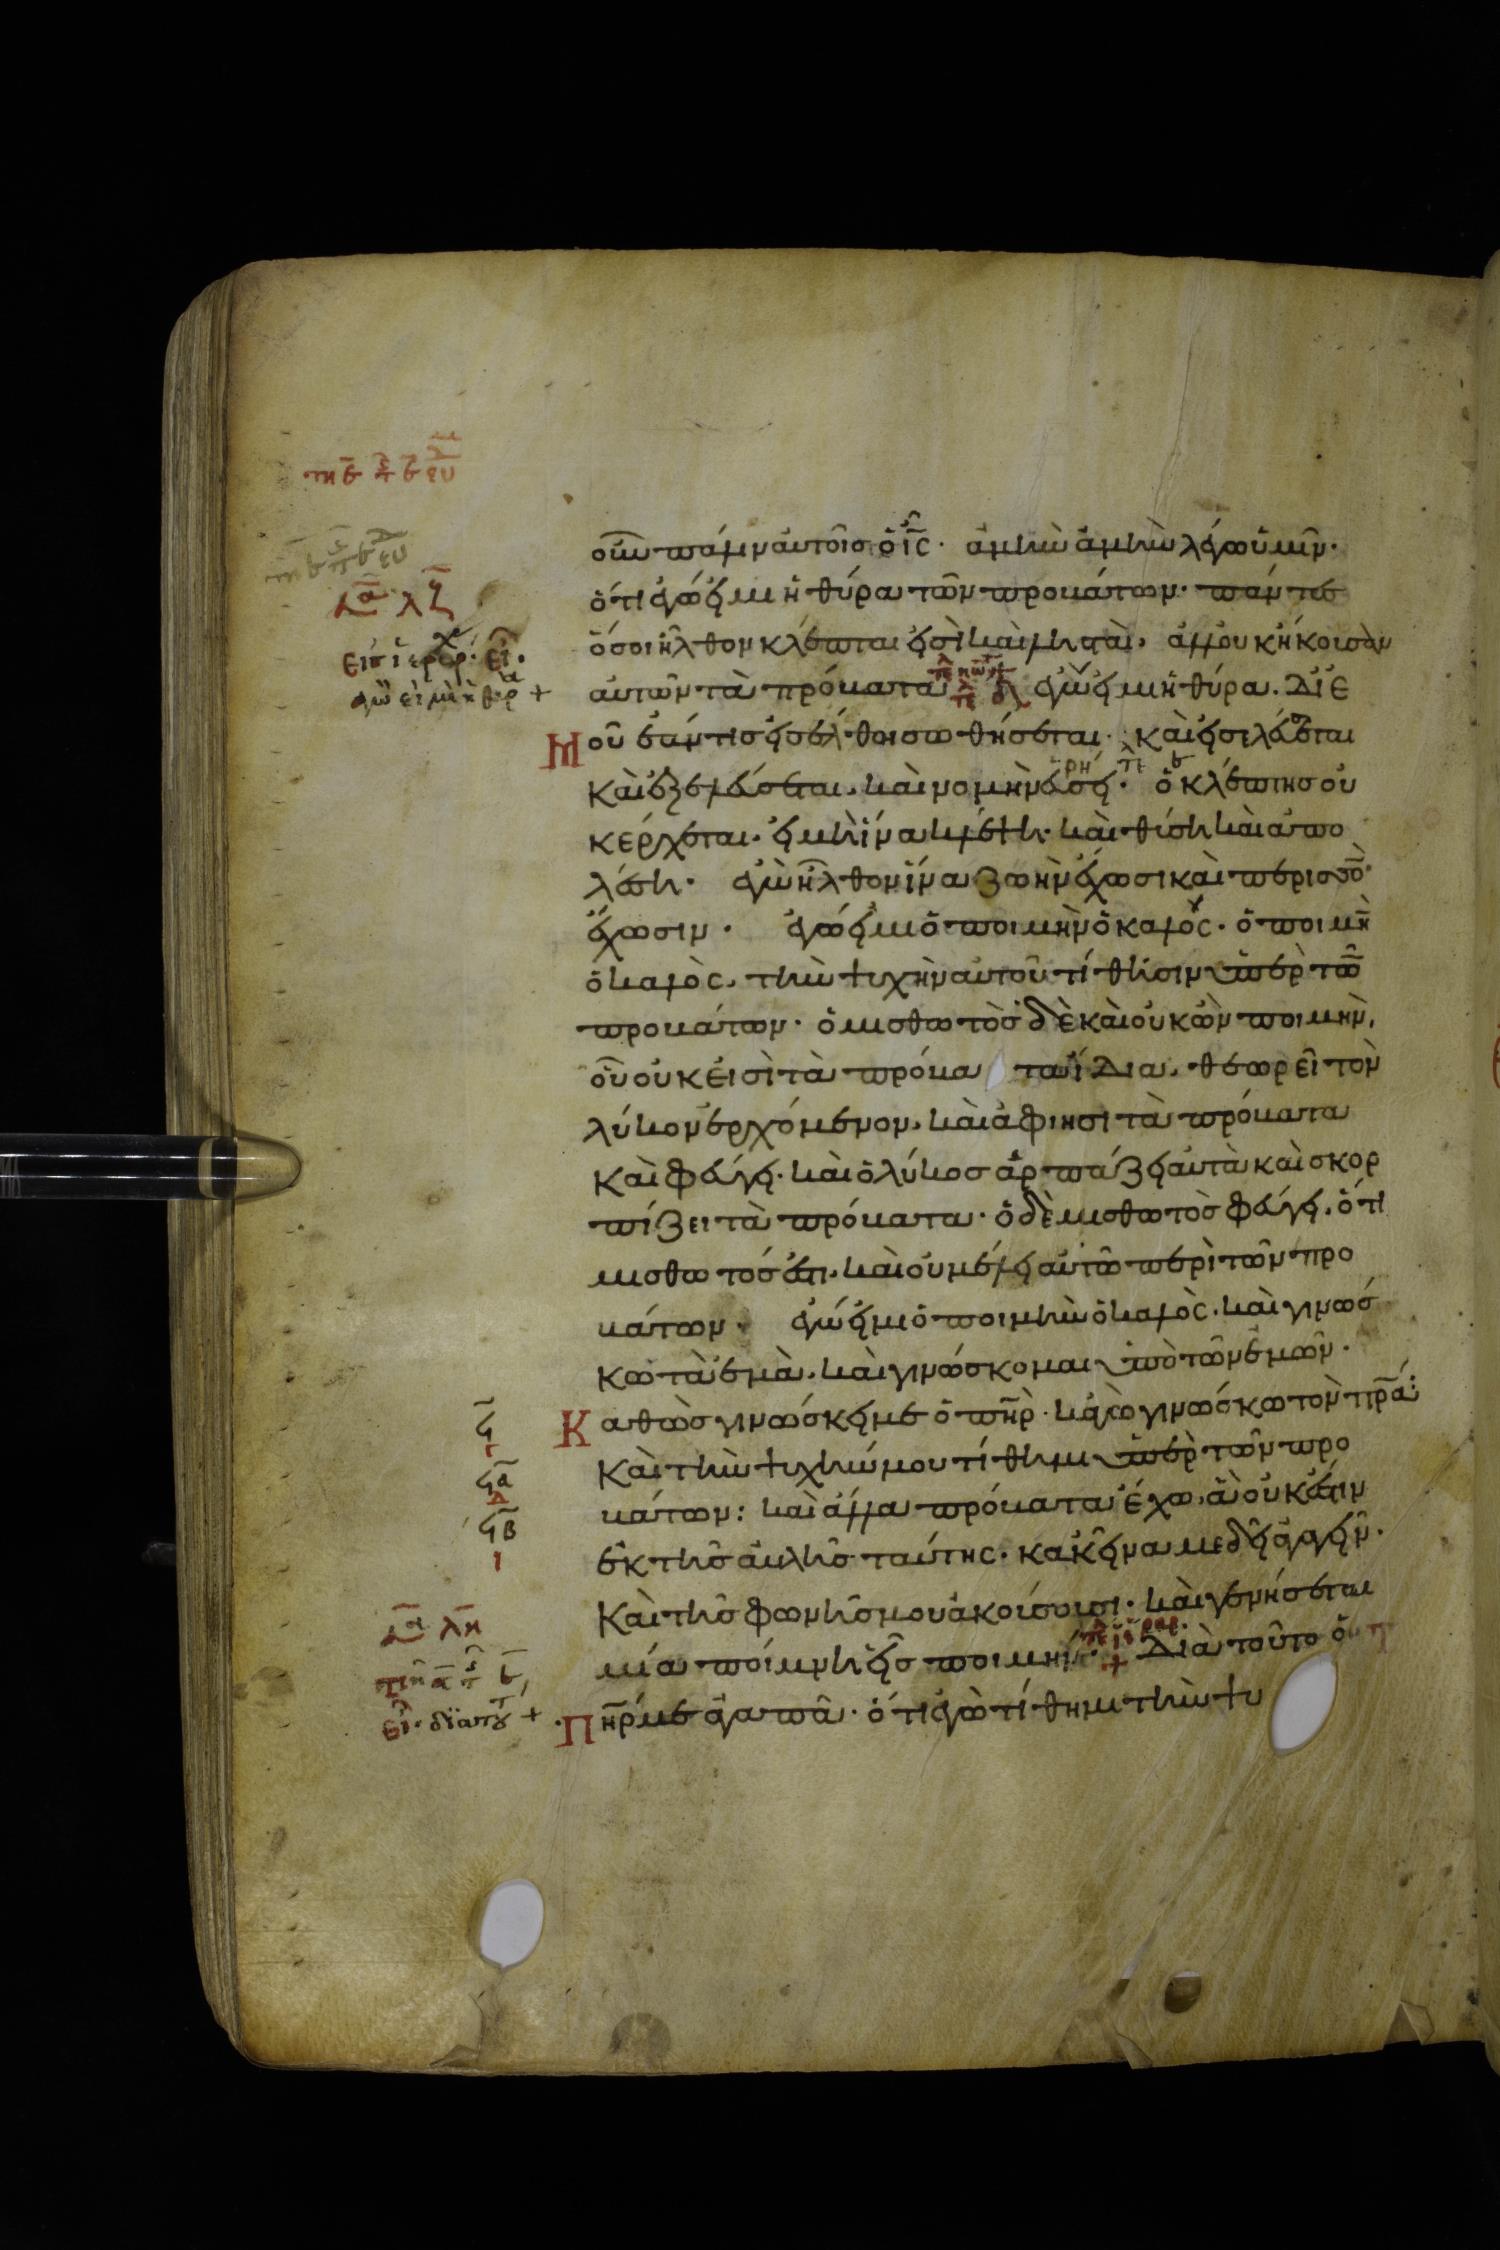 οὖν πάλιν αὐτοῖσ ὁ ις̅· ἀμὴν ἀμὴν λέγω ὑμῖν·
ὅτι ἐγώ εἰμι ἡ θύρα τῶν προβάτων· πάντεσ
ὅσοι ἦλθον κλέπται εἰσὶ καὶ λησταὶ· ἀλλ' οὐκ ἤκουσαν
αὐτῶν τὰ πρόβατα
ἐγώ εἰμι ἡ θύρα. ΔΙ Ε
Μοῦ ἐάν τισ εἰσέλθοι σωθήσεται· καὶ εἰσελεύσεται
καὶ ἐξελεύσεται· καὶ νομὴν εὑρήσει· ὁ κλέπτησ οὐ
κ ἔρχεται· εἰ μὴ ἵνα κλέψη· καὶ θύση καὶ ἀπο
λέση· ἐγὼ ἦλθον ἵνα ζωὴν ἔχωσι καὶ περισσὸ̅
ἔχωσιν· ἐγώ εἰμι ὁ ποιμὴν ὁ καλός· ὁ ποιμὴ̅
ὁ καλὸς, τὴν ψυχὴν αὐτοῦ τίθησιν ὑπὲρ τῶ̅
προβάτων· ὁ μισθωτὸσ δὲ καὶ οὐκ ὢν ποιμὴν,
οὗ οὐκ εἰσὶ τὰ πρόβα τα ἴδια, θεωρεῖ τὸν
λύκον ἐρχόμενον, καὶ ἀφίησι τὰ πρόβατα
καὶ φεύγει· καὶ ὁ λύκοσ ἁρπάζει αὐτὰ καὶ σκορ
πίζει τὰ πρόβατα· ὁ δὲ μισθωτὸσ φεύγει, ὅτι
μισθωτόσ ἐστι· καὶ οὐ μέλει αὐτῶ περὶ τῶν προ
βάτων· ἐγώ εἰμι ὁ ποιμὴν ὁ καλὸς· καὶ γινώσ
κω τὰ ἐμὰ, καὶ γινώσκομαι ὑπὸ τῶν ἐμῶν·
Καθὼσ γινώσκει με ὁ πη̅ρ· κἀγὼ γινώσκω τὸν πρ̅α·
καὶ τὴν ψυχήν μου τίθημι ὑπὲρ τῶν προ
βάτων: καὶ ἄλλα πρόβατα ἔχω, ἃ οὐκ ἔστιν
ἐκ τῆσ αὐλῆσ ταύτης· κακεῖνα με δεῖ ἀγαγεῖν·
καὶ τῆσ φωνῆσ μου ἀκούσουσι· καὶ γενήσεται
μία ποίμνη εἷσ ποιμήν· Διὰ τοῦτο ὁ
Πη̅ρ με ἀγαπᾶ· ὅτι ἐγὼ τίθημι τὴν ψυ
λζ
ἐγώ εἰμι ἡ θύρα +
ϟ
ϟα
ϟβ
λη